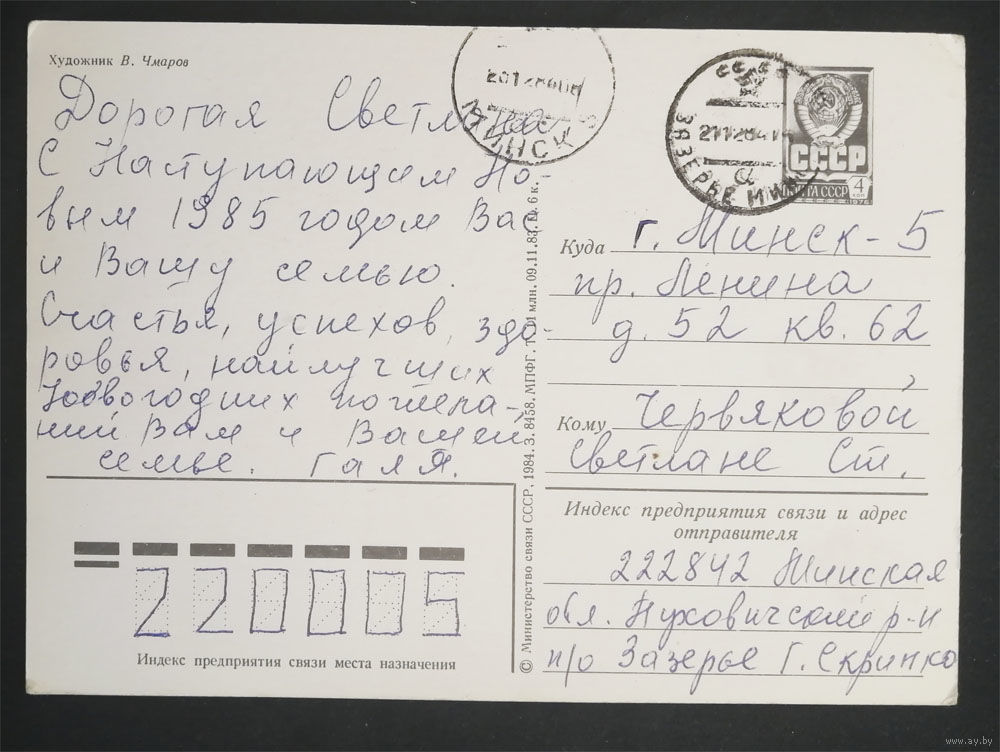 Художник В. Чмаров
Дорогая Светлана
С Наступающим Но-
вым 1985 годом Вас
и Вашу семью.
Счастья, успехов, здо-
ровья, найлучших
Новогодних пожела-
ний Вам и Вашей
семье. Галя.
МИНСК
ЗАЗЕРЬЕ МИН
СССР
ПОЧТА СССР
4
коп
Куда г. Минск-5
пр. Ленина
д. 52 кв. 62
Кому Червяковой
Светлане Ст.
Индекс предприятия связи и адрес
отправителя
222842 Минская
обл. Пуховичский р-н
п/о Зазерье Г. Скрипко
220005
Индекс предприятия связи места назначения
© Министерство связи СССР, 1984. З. 8458. МПФГ. млн. 09.11.83. Ц. 6 к.
www.ay.by